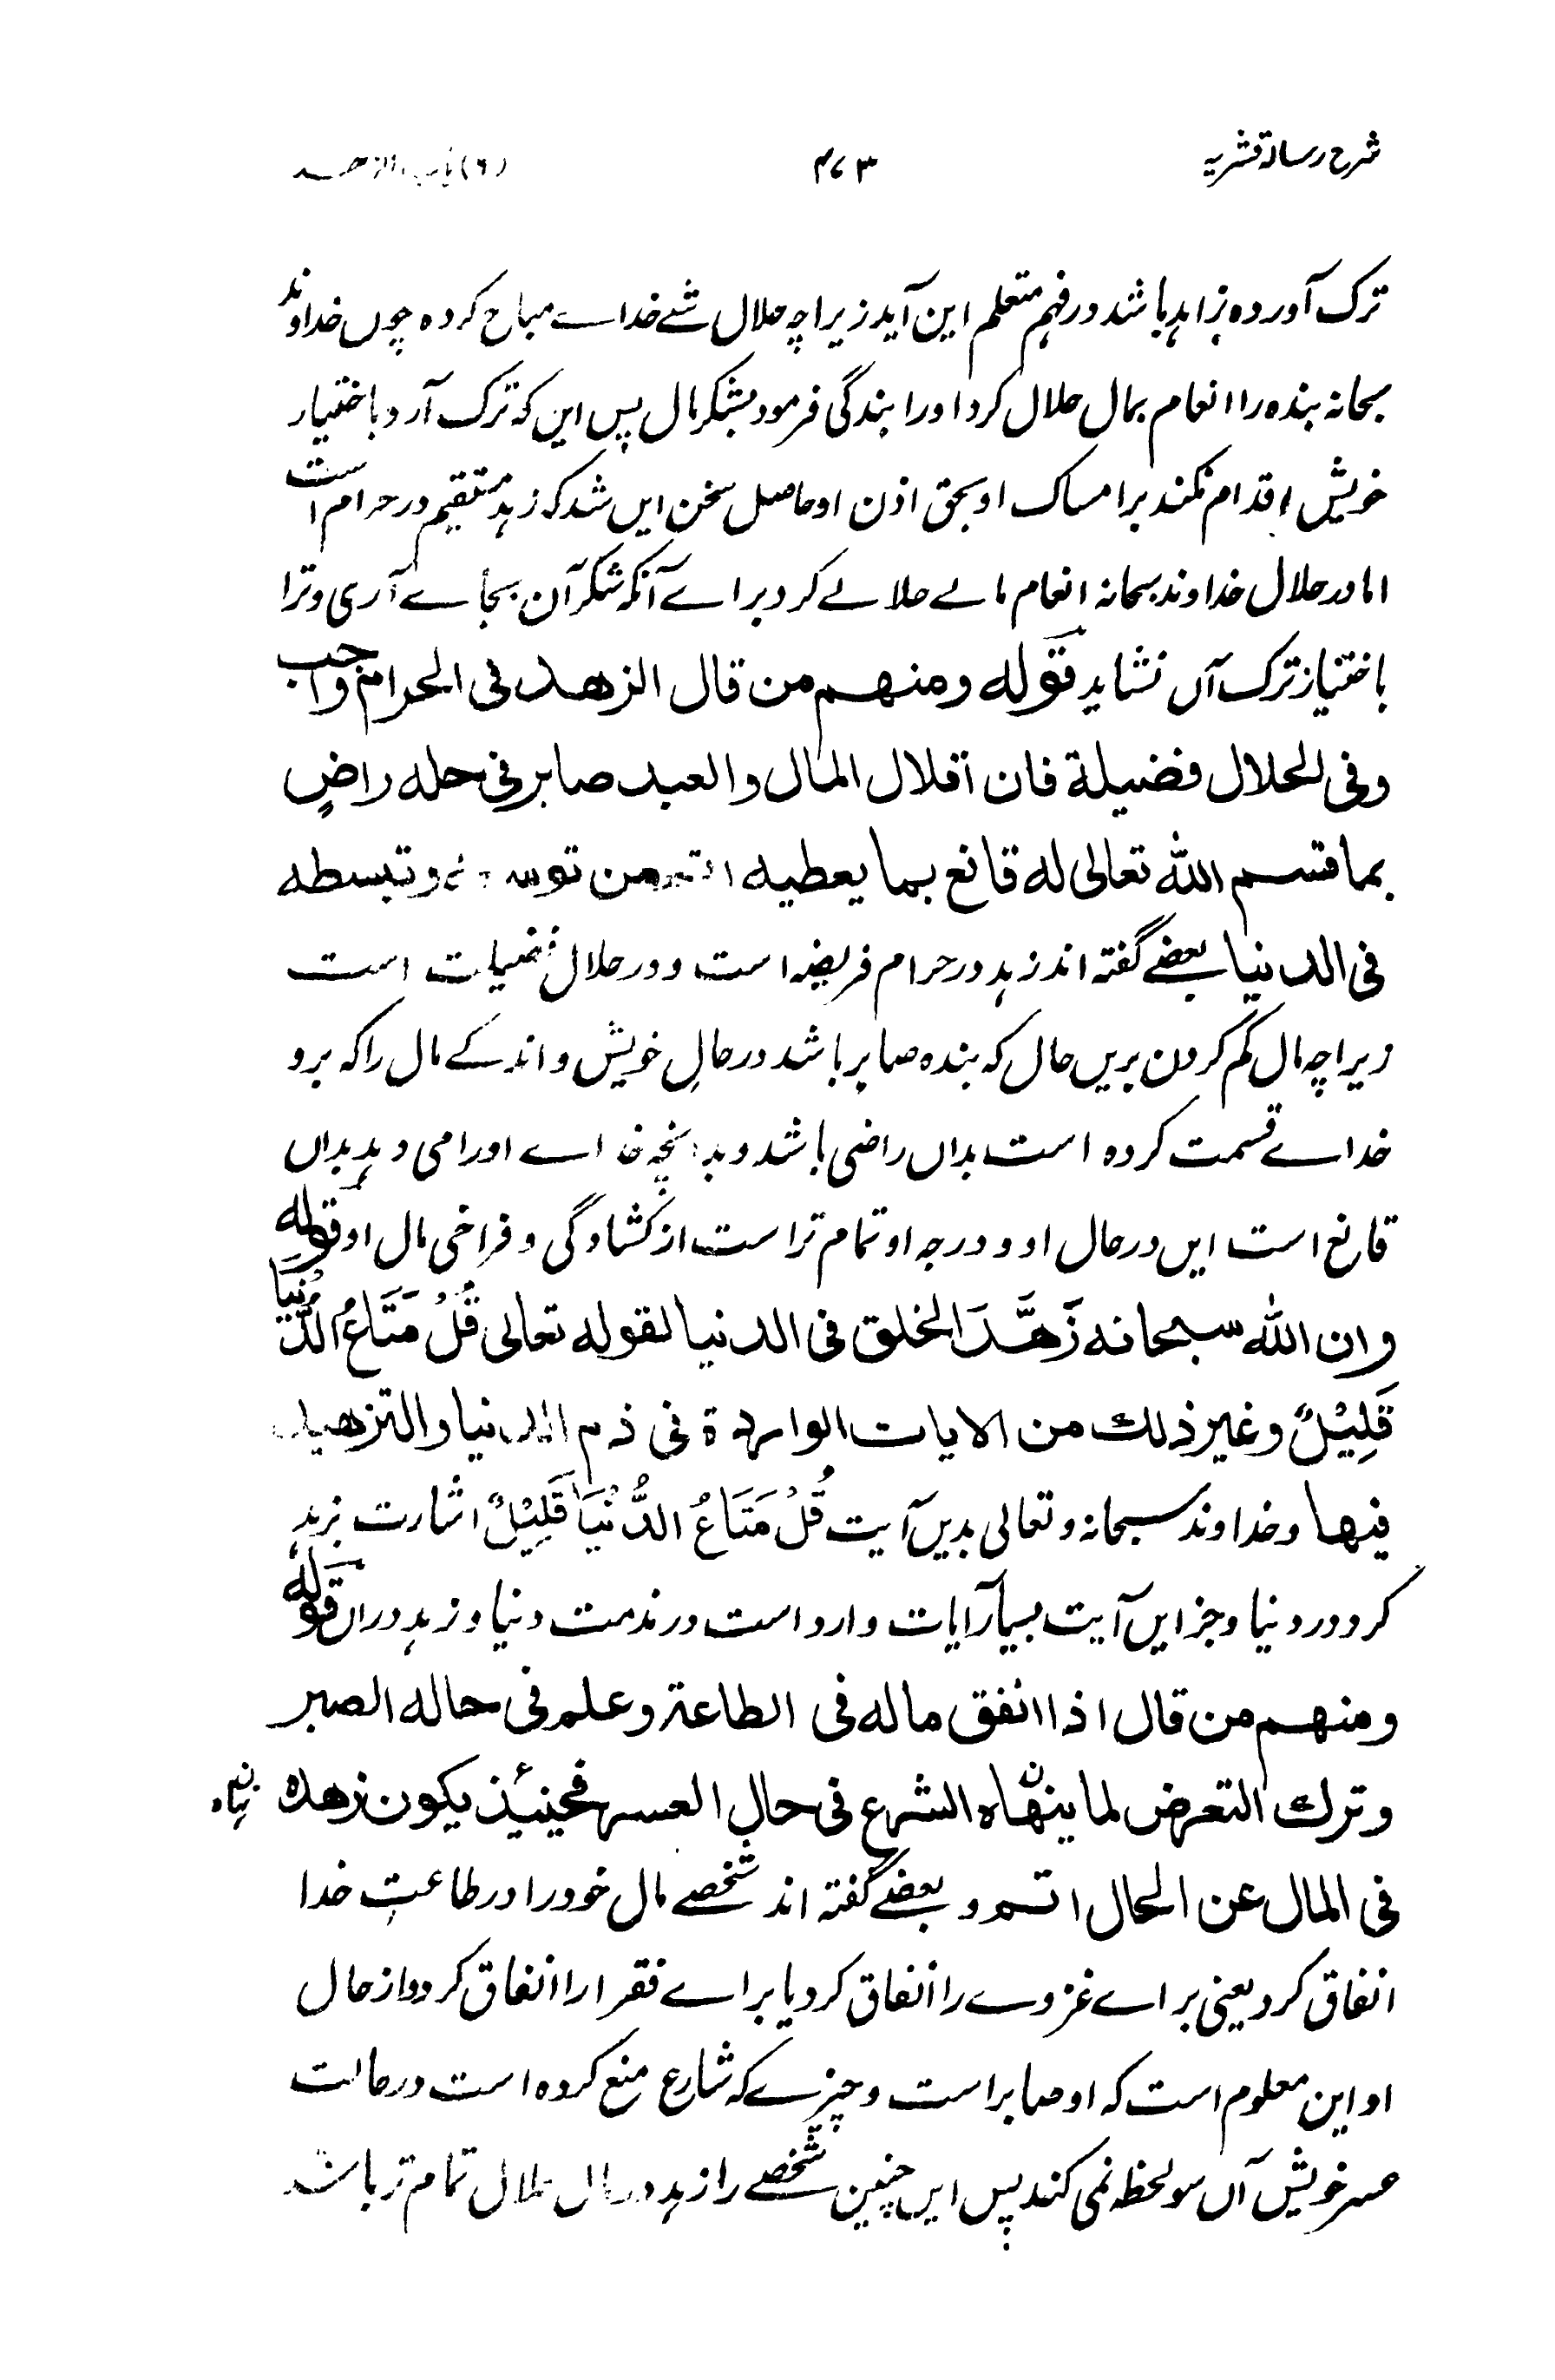 شرح رسالۃ قشریہ
۴۷۳
(۶) باب الزھد
ترک آوردہ زاہد باشد در فہم متعلم این آید زیراچہ حلال شئے خداے مباح کردہ چوں خداوند
سبحانہ بندہ را انعام بمال حلال کرد اورا بندگی فرمود بشکر مال پس این کہ ترک آرد باختیار
خویش اقدام نکند بر امساک او بحق اذن او حاصل سخن ایں شد کہ زہد مستقیم در حرام است
اما در حلال خداوند سبحانہ انعام مالے حلالے کرد براے آنکہ شکر آن بجاے آری و ترا
باختیار ترک آں نشاید قولہ ومنهم من قال الزهد فى الحرام واجب
وفى الحلال فضيلة فان اقلال المال والعبد صابر فى حاله راضٍ
بما قسم الله تعالى له قانع بما يعطيه اتم من توسعه وتبسطه
فى الدنيا بعضے گفتہ اند زہد در حرام فریضہ است و در حلال فضیلت است
زیراچہ مال کم کردن بریں حال کہ بندہ صابر باشد در حالِ خویش و اندکے مال را کہ برو
خداے قسمت کردہ است بداں راضی باشد و بدانچہ خداے اورا می دہد بداں
قانع است ایں در حال او و درجہ او تمام تر است از کشادگی و فراخی مال او قولہ
وان الله سبحانه زَهَّدَ الخلق فى الدنيا لقوله تعالى قُلْ مَتَاعُ الدُّنْيَا
قَلِيْلٌ وغير ذلك من الايات الواردة فى ذم الدنيا والتزهيد
فيها و خداوند سبحانہ و تعالی بدیں آیت قُلْ مَتَاعُ الدُّنْيَا قَلِيْلٌ اشارت بزہد
کرد در دنیا و جز ایں آیت بسیار آیات وارد است در مذمت دنیا و زہد دراں قولہ
ومنهم من قال اذا انفق ماله فى الطاعة وعلم فى حاله الصبر
وترك التعرض لما ينهاه الشرع فى حال العسر فحينئذ يكون زهده
فى المال عن الحال اتم و بعضے گفتہ اند شخصے مال خود را در طاعتِ خدا
انفاق کرد یعنی براے غزوے را انفاق کرد یا براے فقرا را انفاق کرد و از حال
او این معلوم است کہ او صابر است و چیزے کہ شارع منع کردہ است در حالت
عسر خویش آں سو لحظہ نمی کند پس ایں چنین شخصے را زہد در مال حلال تمام تر باشد